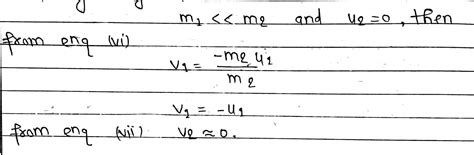 m₁ << m₂ and u₂=0, then
from enq (vi)
v₁ = -m₂ u₁ / m₂
v₁ = -u₁
from enq (vii) v₂ ≈ 0.